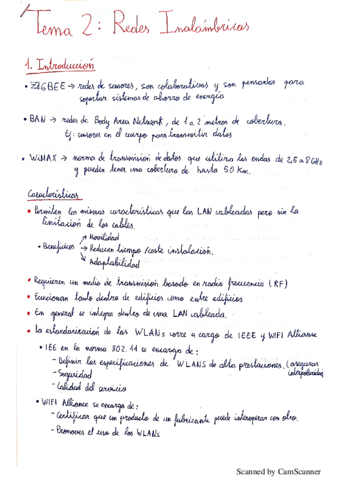 Tema 2: Redes Inalámbricas
1. Introducción
• ZIGBEE → redes de sensores, son colaborativas y son pensadas para
soportar sistemas de ahorro de energía
• BAN → redes de Body Area Network, de 1 a 2 metros de cobertura.
Ej: sensores en el cuerpo para transmitir datos
• WiMAX → norma de transmisión de datos que utiliza las ondas de 2,5 a 8 GHz
y pueden tener una cobertura de hasta 50 Km.
Características
• Permiten las mismas características que las LAN cableadas pero sin la
limitación de los cables.
• Beneficios → Movilidad
→ Reducen tiempo /coste instalación.
→ Adaptabilidad
• Requieren un medio de transmisión basado en radio frecuencia (RF)
• Funcionan tanto dentro de edificios como entre edificios
• En general se integra dentro de una LAN cableada.
• La estandarización de las WLANs corre a cargo de IEEE y WIFI Alliance
• IEE en la norma 802.11 se encarga de:
- Definir las especificaciones de WLANS de alta prestaciones. (asegurar
- Seguridad
- Calidad del servicio
• WIFI Alliance se encarga de:
- Certificar que un producto de un fabricante puede interoperar con otro.
- Promover el uso de las WLANs
Scanned by CamScanner